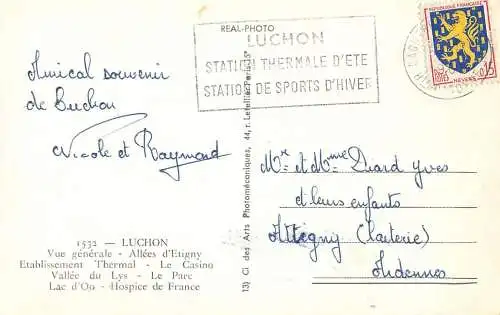 REAL-PHOTO
LUCHON
STATION THERMALE D'ETE
STATION DE SPORTS D'HIVER
REPUBLIQUE FRANÇAISE
POSTES
0,15
NEVERS
Amical souvenir
de Luchon
Nicole et Raymond
Mr et Mme Diard Yves
et leurs enfants
Attigny (Laiterie)
Ardennes
1532 — LUCHON
Vue générale - Allées d'Etigny
Etablissement Thermal - Le Casino
Vallée du Lys - Le Parc
Lac d'Oo - Hospice de France
13) Cl des Arts Photomécaniques, 44, r. Letellier Paris-15e